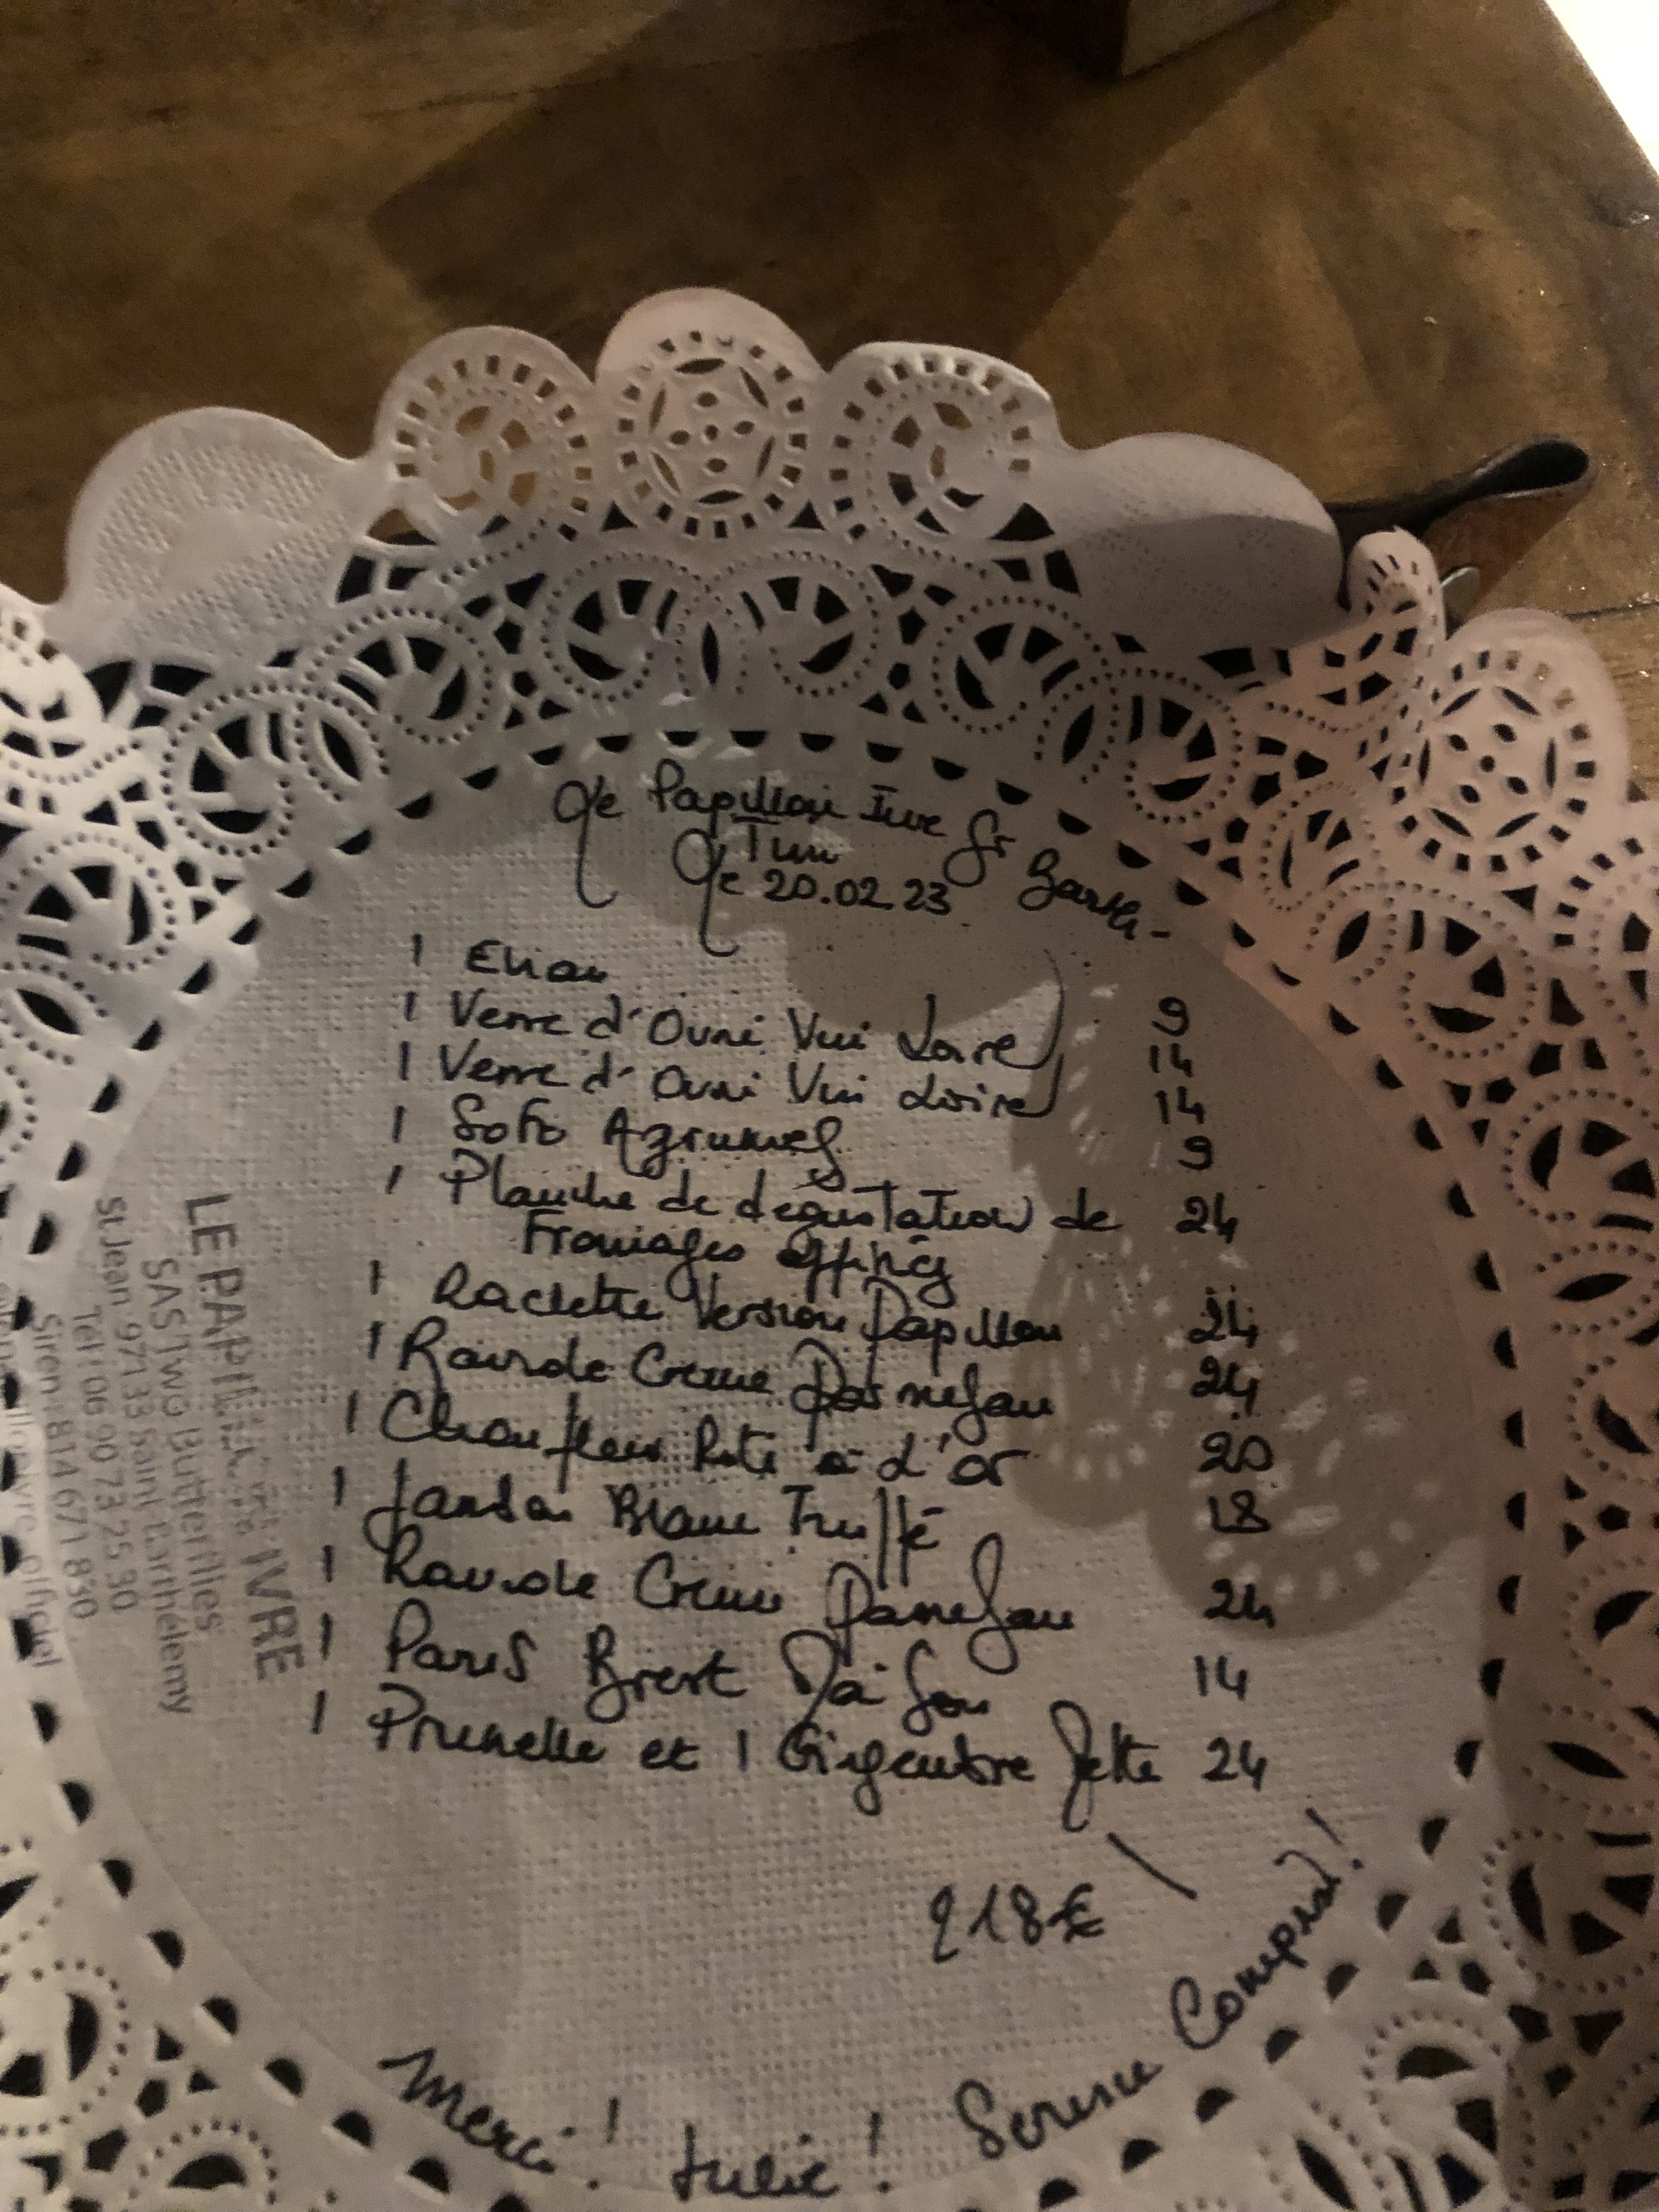 Le Papillon Ivre St Barth-
Le 20.02.23
1 Evian 9
1 Verre d'Ovni Vini Loire 14
1 Verre d'Ovni Vini Loire 14
1 SoFo Agrumes 9
1 Planche de dégustation de 24
Fromages affinés
1 Raclette Version Papillon 24
1 Raviole Creme Parmesan 24
1 Chou fleur Roti à L'or 20
1 Jambon Blanc Truffé 18
1 Raviole Creme Parmesan 24
1 Paris Brest Maison 14
1 Prunelle et 1 Gigembre Jette 24
218€
Merci! Julie! Service Compris!
LE PAPILLON IVRE
SAS Two Butterflies
St Jean 97133 Saint Barthélemy
Tel: 06 90 73 25 30
Siren: 814 671 830